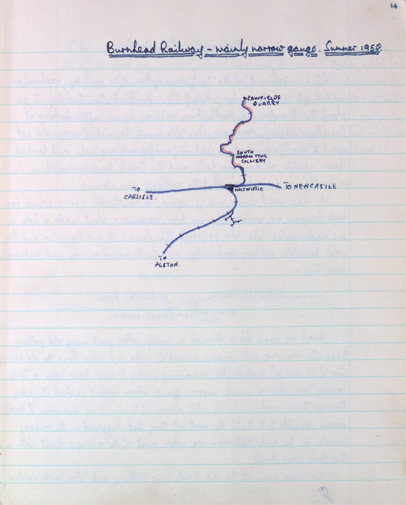 14
Burnhead Railway - mainly narrow gauge. Summer 1958
CAWFIELDS
QUARRY
SOUTH
TYNE
COLLIERY
TO
CARLISLE.
HALTWHISTLE
TO NEWCASTLE
TO
ALSTON.